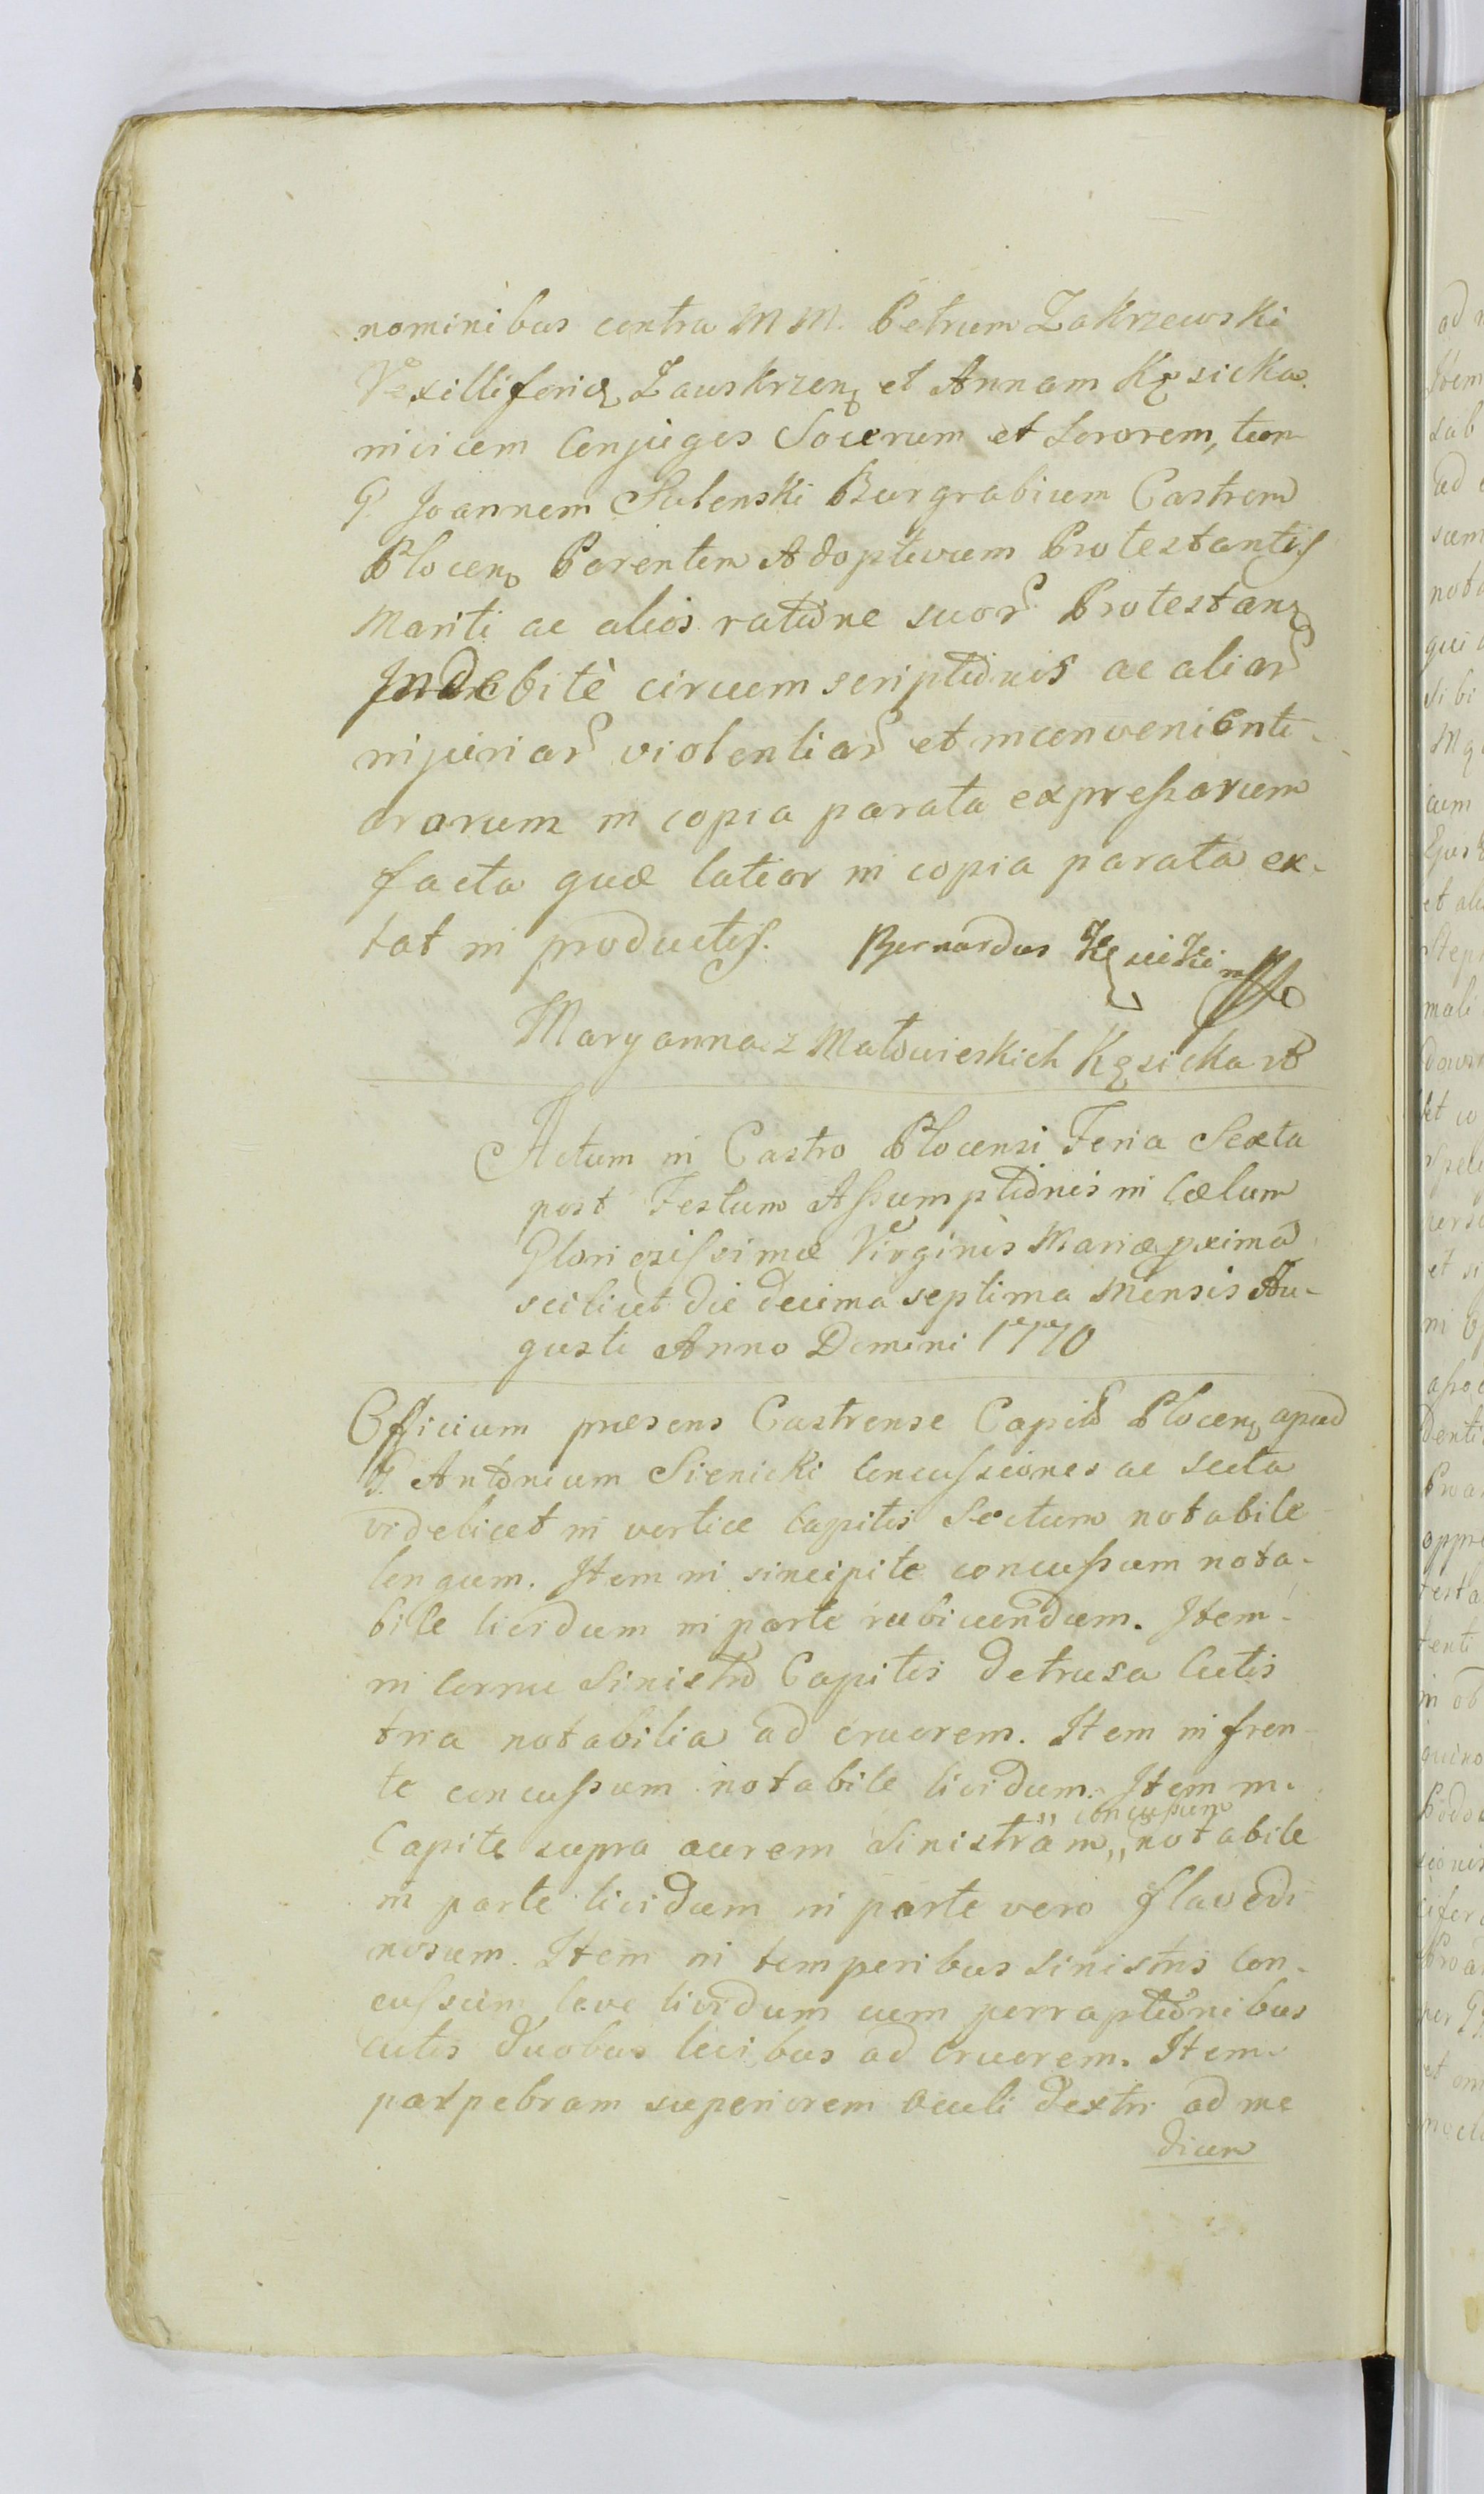 nominibus contra M M. Petrum Zakrzewski
Vexilliferid Zawskrzen et Annam Kęsicka
invicem Conjuges Socerum et Sororem, tum
G. Joannem Sulenski Burgrabium Castrem
Plocen Parentem Adoptivum Protestantis
Mariti ac alios ratione suor Protestan
Indebitè circumscriptionis ac aliar
injuriar violentiar et inconvenienti-
ararum in copia parata expressarum
facta quæ latior in copia parata ex-
tat in productis. Bernardus Kęsicki mp
Maryanna z Małowieskich Kęsicka
Actum in Castro Plocensi Feria Sexta
post Festum Assumptionis in Cælum
Gloriosissimæ Virginis Mariæ pxima
scilicet die decima septima Mensis Au-
gusti Anno Domini 1770
Officium præsens Castrense Capitle Plocen apud
G. Antonium Sienicki Concussiones ac Secta
videlicet in vertice Capitis Sectum notabile
longum. Item in sincipite concussum nota-
bile lividum in parte rubicundum. Item
in Cornu Sinistro Capitis detrusa Cutis
tria notabilia ad cruorem. Item in fron-
te concussum notabile lividum. Item in
Capite supra aurem Sinistram „ concussum „ notabile
in parte lividum in parte vero flavedi
nosum. Item in temporibus Sinistris Con-
cussum leve lividum cum perraptionibus
cutis duobus levibus ad cruorem. Item
palpebram superiorem Oculi dextri ad me
dium